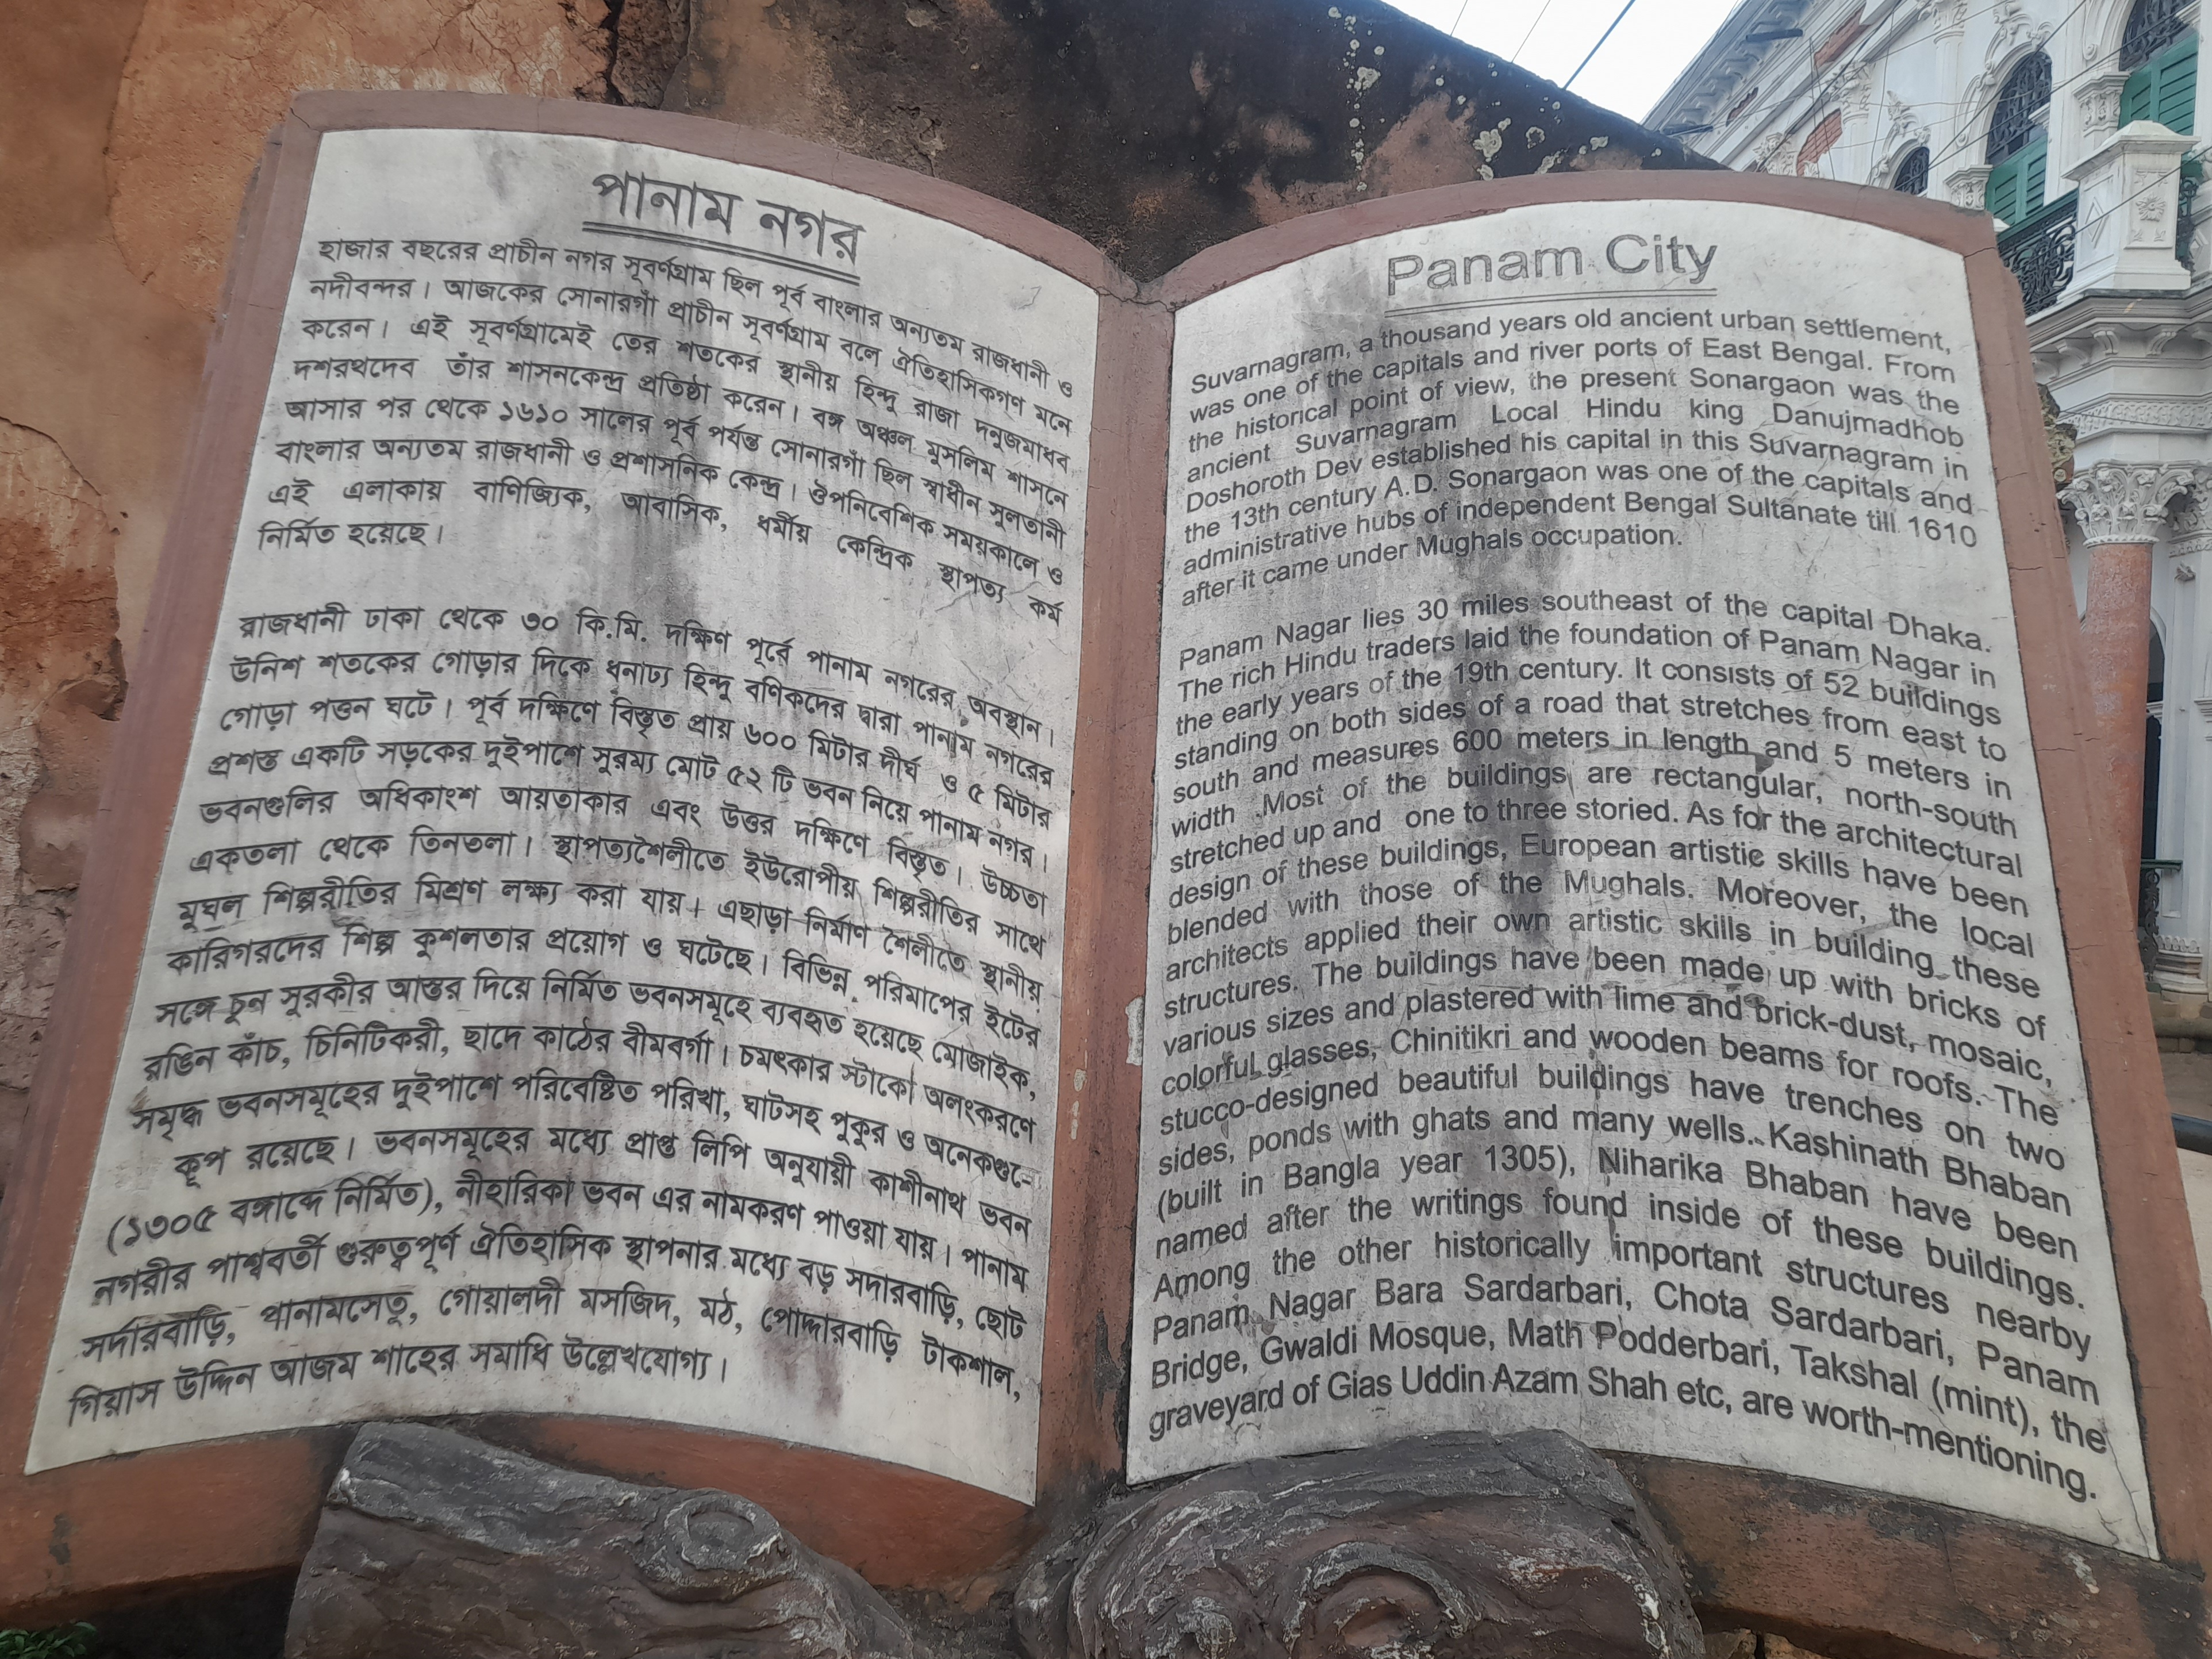 পানাম নগর
হাজার বছরের প্রাচীন নগর সূবর্ণগ্রাম ছিল পূর্ব বাংলার অন্যতম রাজধানী ও
নদীবন্দর। আজকের সোনারগাঁ প্রাচীন সূবর্ণগ্রাম বলে ঐতিহাসিকগণ মনে
করেন। এই সূবর্ণগ্রামেই তের শতকের স্থানীয় হিন্দু রাজা দনুজমাধব
দশরথদেব তাঁর শাসনকেন্দ্র প্রতিষ্ঠা করেন। বঙ্গ অঞ্চল মুসলিম শাসনে
আসার পর থেকে ১৬১০ সালের পূর্ব পর্যন্ত সোনারগাঁ ছিল স্বাধীন সুলতানী
বাংলার অন্যতম রাজধানী ও প্রশাসনিক কেন্দ্র। ঔপনিবেশিক সময়কালে ও
এই এলাকায় বাণিজ্যিক, আবাসিক, ধর্মীয় কেন্দ্রিক স্থাপত্য কর্ম
নির্মিত হয়েছে।
রাজধানী ঢাকা থেকে ৩০ কি.মি. দক্ষিণ পূর্বে পানাম নগরের অবস্থান।
উনিশ শতকের গোড়ার দিকে ধনাঢ্য হিন্দু বণিকদের দ্বারা পানাম নগরের
গোড়া পত্তন ঘটে। পূর্ব দক্ষিণে বিস্তৃত প্রায় ৬০০ মিটার দীর্ঘ ও ৫ মিটার
প্রশস্ত একটি সড়কের দুইপাশে সুরম্য মোট ৫২ টি ভবন নিয়ে পানাম নগর।
ভবনগুলির অধিকাংশ আয়তাকার এবং উত্তর দক্ষিণে বিস্তৃত। উচ্চতা
একতলা থেকে তিনতলা। স্থাপত্যশৈলীতে ইউরোপীয় শিল্পরীতির সাথে
মুঘল শিল্পরীতির মিশ্রণ লক্ষ্য করা যায়। এছাড়া নির্মাণ শৈলীতে স্থানীয়
কারিগরদের শিল্প কুশলতার প্রয়োগ ও ঘটেছে। বিভিন্ন পরিমাপের ইটের
সঙ্গে চুন সুরকীর আস্তর দিয়ে নির্মিত ভবনসমূহে ব্যবহৃত হয়েছে মোজাইক,
রঙিন কাঁচ, চিনিটিকরী, ছাদে কাঠের বীমবর্গা। চমৎকার স্টাকো অলংকরণে
সমৃদ্ধ ভবনসমূহের দুইপাশে পরিবেষ্টিত পরিখা, ঘাটসহ পুকুর ও অনেকগু-
কূপ রয়েছে। ভবনসমূহের মধ্যে প্রাপ্ত লিপি অনুযায়ী কাশীনাথ ভবন
(১৩০৫ বঙ্গাব্দে নির্মিত), নীহারিকা ভবন এর নামকরণ পাওয়া যায়। পানাম
নগরীর পাশ্ববর্তী গুরুত্বপূর্ণ ঐতিহাসিক স্থাপনার মধ্যে বড় সদারবাড়ি, ছোট
সর্দারবাড়ি, পানামসেতু, গোয়ালদী মসজিদ, মঠ, পোদ্দারবাড়ি টাকশাল,
গিয়াস উদ্দিন আজম শাহের সমাধি উল্লেখযোগ্য।
Panam City
Suvarnagram, a thousand years old ancient urban settlement,
was one of the capitals and river ports of East Bengal. From
the historical point of view, the present Sonargaon was the
ancient Suvarnagram Local Hindu king Danujmadhob
Doshoroth Dev established his capital in this Suvarnagram in
the 13th century A.D. Sonargaon was one of the capitals and
administrative hubs of independent Bengal Sultanate till 1610
after it came under Mughals occupation.
Panam Nagar lies 30 miles southeast of the capital Dhaka.
The rich Hindu traders laid the foundation of Panam Nagar in
the early years of the 19th century. It consists of 52 buildings
standing on both sides of a road that stretches from east to
south and measures 600 meters in length and 5 meters in
width .Most of the buildings are rectangular, north-south
stretched up and one to three storied. As for the architectural
design of these buildings, European artistic skills have been
blended with those of the Mughals. Moreover, the local
architects applied their own artistic skills in building these
structures. The buildings have been made up with bricks of
various sizes and plastered with lime and brick-dust, mosaic,
colorful glasses, Chinitikri and wooden beams for roofs. The
stucco-designed beautiful buildings have trenches on two
sides, ponds with ghats and many wells. Kashinath Bhaban
(built in Bangla year 1305), Niharika Bhaban have been
named after the writings found inside of these buildings.
Among the other historically important structures nearby
Panam Nagar Bara Sardarbari, Chota Sardarbari, Panam
Bridge, Gwaldi Mosque, Math Podderbari, Takshal (mint), the
graveyard of Gias Uddin Azam Shah etc, are worth-mentioning.